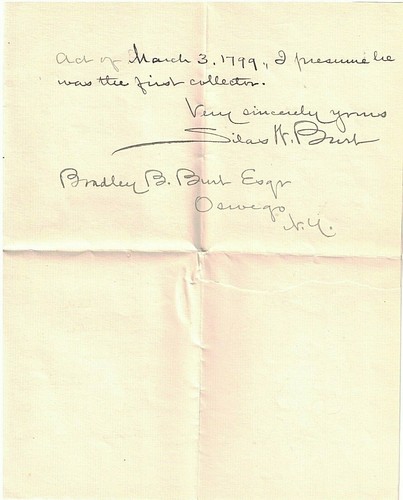 Act of March 3, 1799, I presume he
was the first collector.
Very sincerely yours
Silas W. Burt
Bradley B. Burt Esqr
Oswego
N.Y.